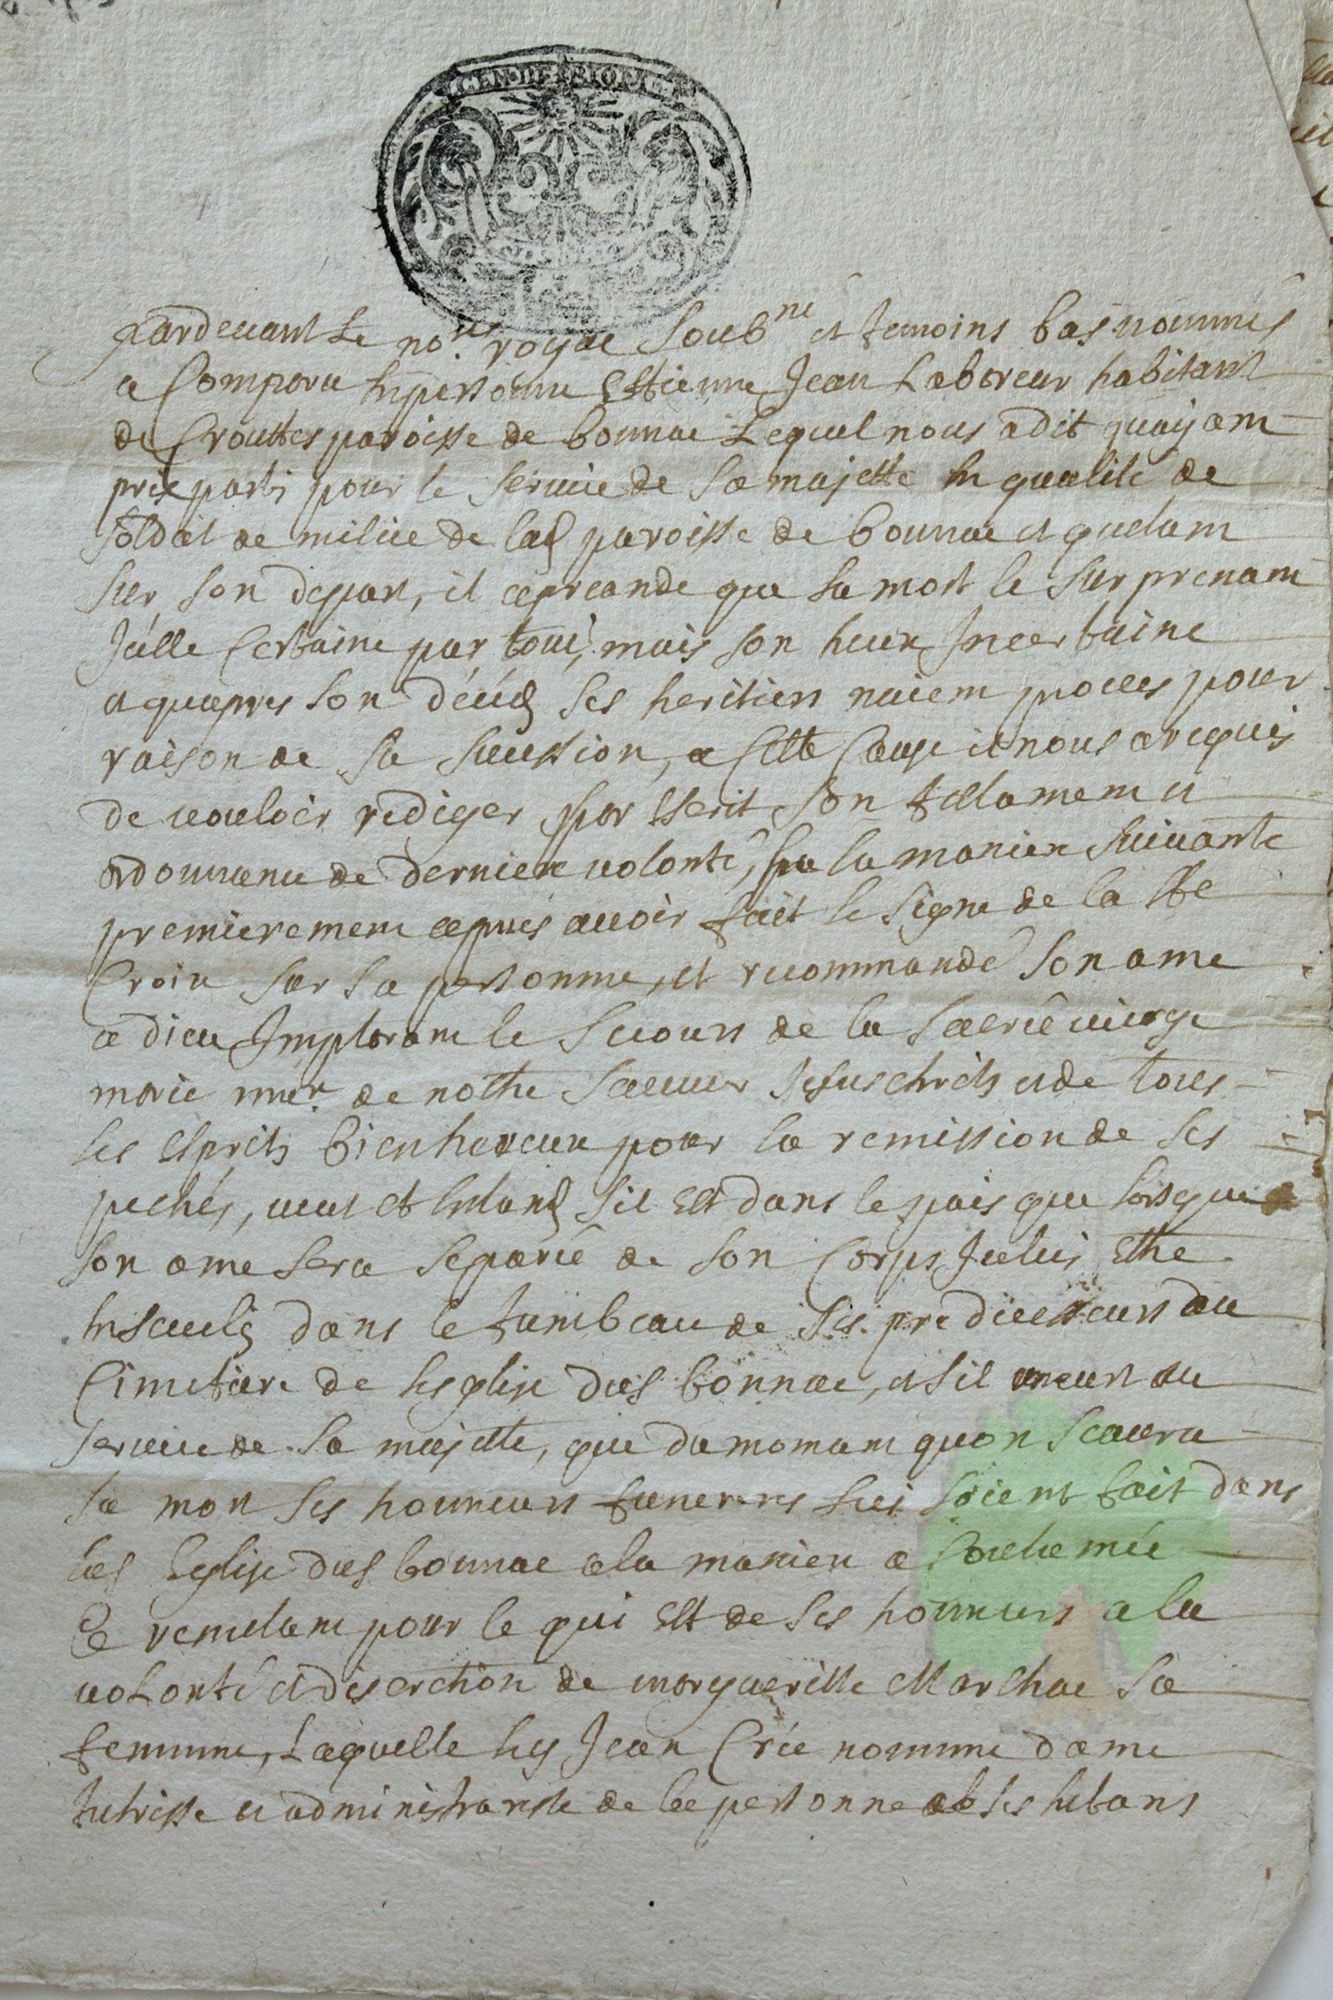 Pardevant Le no.re royal Soub.né et temoins bas nommés
a Comparu En personne Estienne Jean Laboreur habitant
de Crouttes paroisse de bonnac Lequel nous a dit quayam
pris parti pour le service de Sa majesté En qualité de
Soldat de milice de lad paroisse de bonnac et quetam
sur son depart, il apreande que la mort le Surprenam
Icelle Certaine par tout, mais son heure Incertaine
et quapres son décéd ses heritiers naiem proces pour
raison de Sa Succession, a Cette Cause il nous a requis
de vouloir rediger par Escrit Son testamem et
ordonnance de derniere volonté, En la maniere Suivante
premierement apres avoir fait le Signe de la Ste
Croix Sur Sa personne, et recommandé Son ame
a dieu Imploram le Secours de la Sacrée vierge
marie mere de nostre Sauveur Jesuschrits et de tous
les Esprits bienheureux pour la remission de ses
pechés, veut et Entand Sil Est dans le pais que lorsque
Son ame Sera Separée de Son Corps Icelui Estre
Enseveli dans le tumbeau de Ses predecesseurs au
Cimetiere de lesglise dud bonnac, et Sil meurt au
service de Sa majesté, que du momam quon Scaura
Sa mort Ses honneurs funebres lui Soient fait dans
lad Eglise dud bonnac a la maniere acoutumée
Se remetam pour le qui Est de Ses honneurs a la
volonté et discretion de margueritte Marchac Sa
femme, Laquelle led Jean Crée nomme dame
tutrisse et administraresse de la personne et bes Enfans